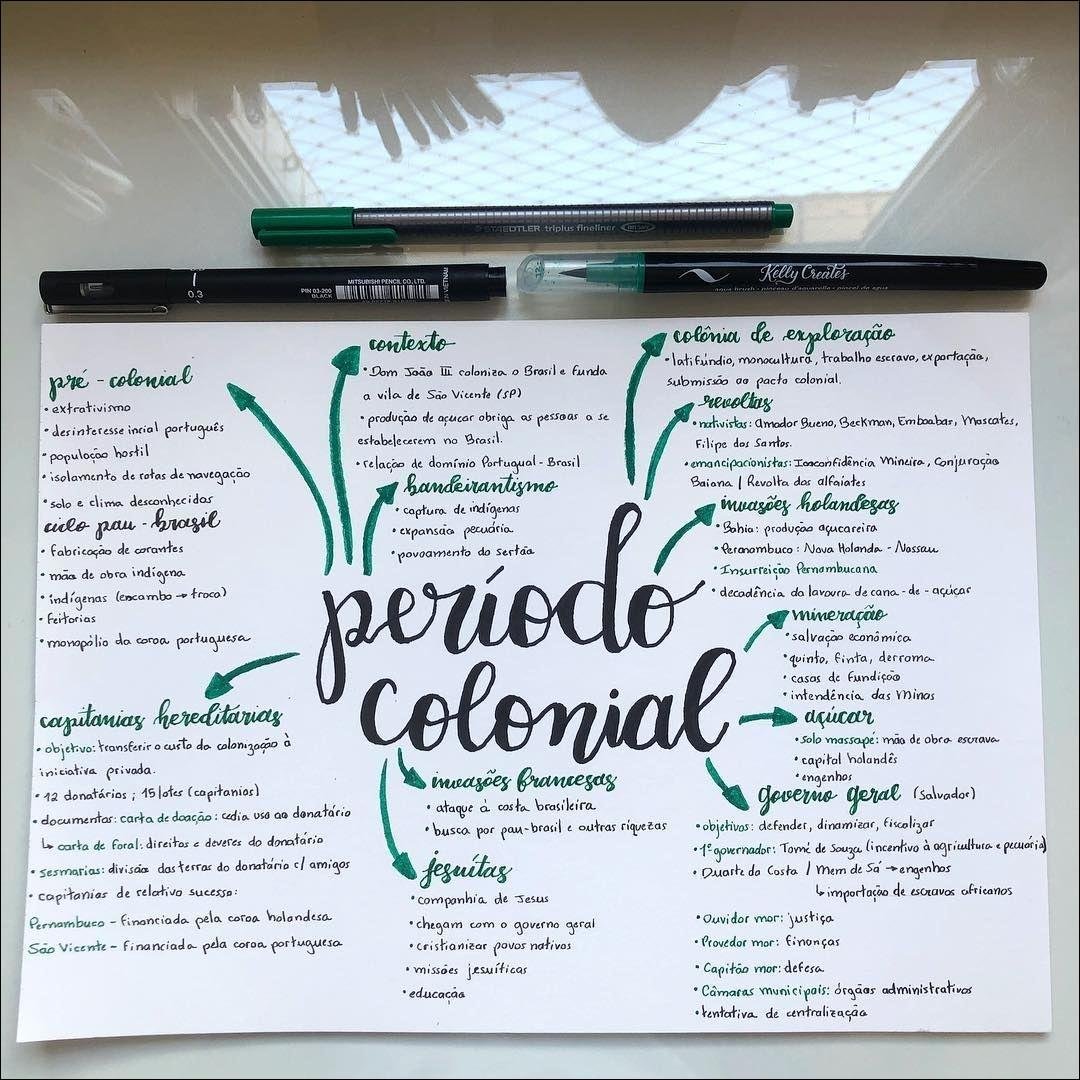 STAEDTLER triplus fineliner
0.3
PIN 03-200
BLACK
MITSUBISHI PENCIL CO., LTD.
Kelly Creates
aqua brush - pinceau d'aquarelle - pincel de agua
pré - colonial
• extrativismo
• desinteresse incial português
• população hostil
• isolamento de rotas de navegação
• solo e clima desconhecidos
ciclo pau - brasil
• fabricação de corantes
• mão de obra indígena
• indígenas (escambo → troca)
• feitorias
• monopólio da coroa portuguesa
contexto
• Dom João III coloniza o Brasil e funda
a vila de São Vicente (SP)
• produção de açucar obriga as pessoas a se
estabelecerem no Brasil.
• relação de domínio Portugual - Brasil
bandeirantismo
• captura de indígenas
• expansão pecuária
• povoamento do sertão
colônia de exploração
• latifúndio, monocultura, trabalho escravo, exportação,
submissão ao pacto colonial.
revoltas
• nativistas: Amador Bueno, Beckman, Emboabar, Mascates,
Filipe dos Santos.
• emancipacionistas: Inconfidência Mineira, Conjuração
Baiana / Revolta dos alfaiates
invasões holandesas
• Bahia: produção açucareira
• Peranambuco: Nova Holanda - Nassau
• Insurreição Pernambucana
• decadência da lavoura de cana - de - açúcar
período
colonial
mineração
• salvação econômica
• quinto, finta, derrama
• casas de fundição
• intendência das minas
açúcar
• solo massapé: mão de obra escrava
• capital holandês
• engenhos
capitanias hereditárias
• objetivo: transferir o custo da colonização à
iniciativa privada.
• 12 donatários ; 15 lotes (capitanios)
• documentos: carta de doação: cedia uso ao donatário
↳ carta de foral: direitos e deveres do donatário
• sesmarias: divisão das terras do donatário c/ amigos
• capitanias de relativo sucesso:
Pernambuco - financiada pela coroa holandesa
São Vicente - financiada pela coroa portuguesa
invasões francesas
• ataque à costa brasileira
• busca por pau-brasil e outras riquezas
jesuítas
• companhia de Jesus
• chegam com o governo geral
• cristianizar povos nativos
• missões jesuíticas
• educação
governo geral (Salvador)
• objetivos: defender, dinamizar, fiscalizar
• 1º governador: Tomé de Souza (incentivo à agricultura e pecuária)
• Duarte da Costa / Mem de Sá → engenhos
↳ importação de escravos africanos
• Ouvidor mor: justiça
• Provedor mor: finanças
• Capitão mor: defesa
• Câmaras municipais: órgãos administrativos
• tentativa de centralização